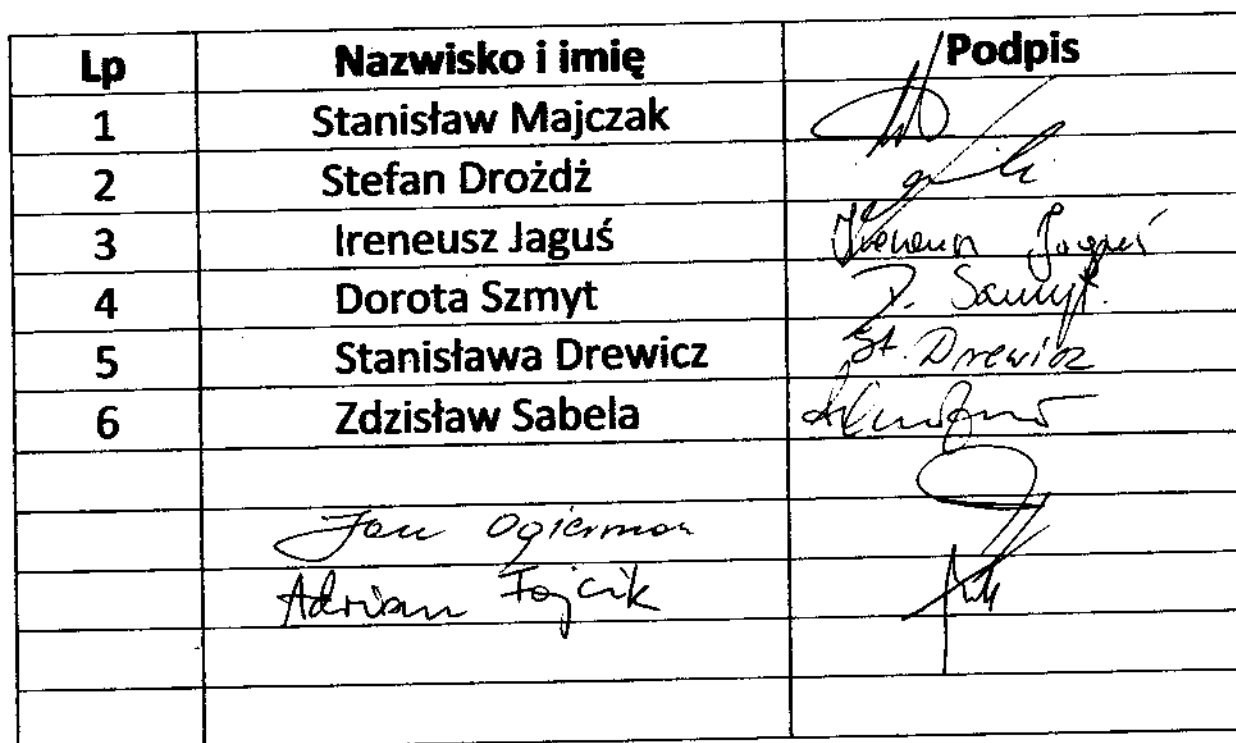 Lp Nazwisko i imię Podpis
1 Stanisław Majczak
2 Stefan Drożdż
3 Ireneusz Jaguś
4 Dorota Szmyt D. Szmyt.
5 Stanisława Drewicz St. Drewicz
6 Zdzisław Sabela
Jan Ogierman
Adrian Fojcik